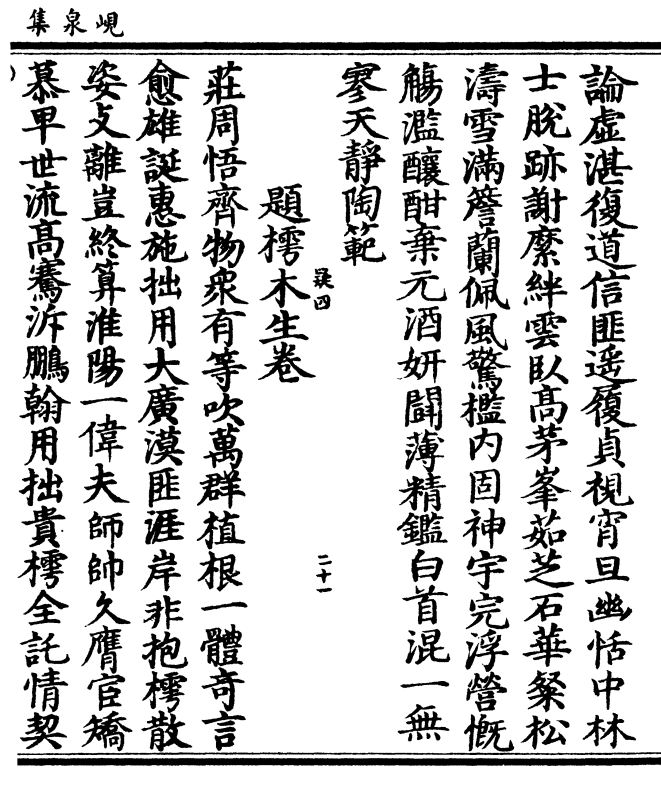 峴泉集
論虛湛復道信匪遥履貞視宵旦幽恬中林
士脫跡謝縻絆雲臥高茅峯茹芝石華粲松
濤雪滿簷蘭佩風驚檻內固神宇完浮營慨
觴濫釀酣棄元酒妍鬪薄精鑑白首混一無
寥天靜陶範
題樗木生卷
疑四
二十一
莊周悟齊物衆有等吹萬群植根一體奇言
愈雄誕惠施拙用大廣漠匪涯岸非抱樗散
姿攴離豈終算淮陽一偉夫師帥久膺宦矯
慕早世流高騫泝鵬翰用拙貴樗全託情契